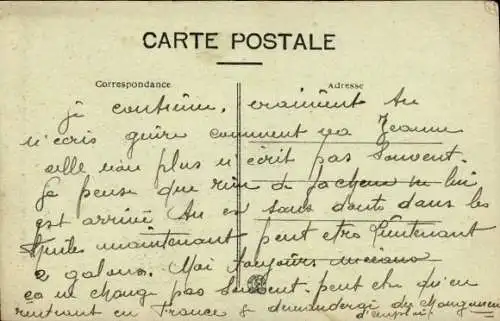 CARTE POSTALE
Correspondance
Adresse
je continue. vraiment tu
n'écris guère comment va Jeanne
elle non plus n'écrit pas souvent.
Je pense que rien de facheux ne lui
est arrivé Tu es sans doute dans les
maintenant peut etre lieutenant
2 galons. Moi toujours
ça ne change pas souvent. peut etre qu'en
rentrant en France je demanderai des changement
d'emploi